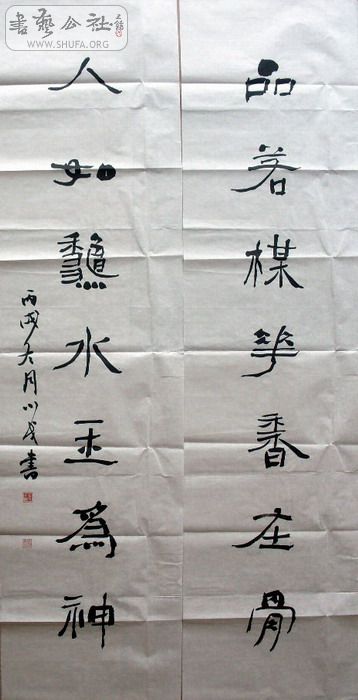 書藝公社
WWW.SHUFA.ORG
品若楳華香在骨
人如龝水玉為神
丙戌冬月書